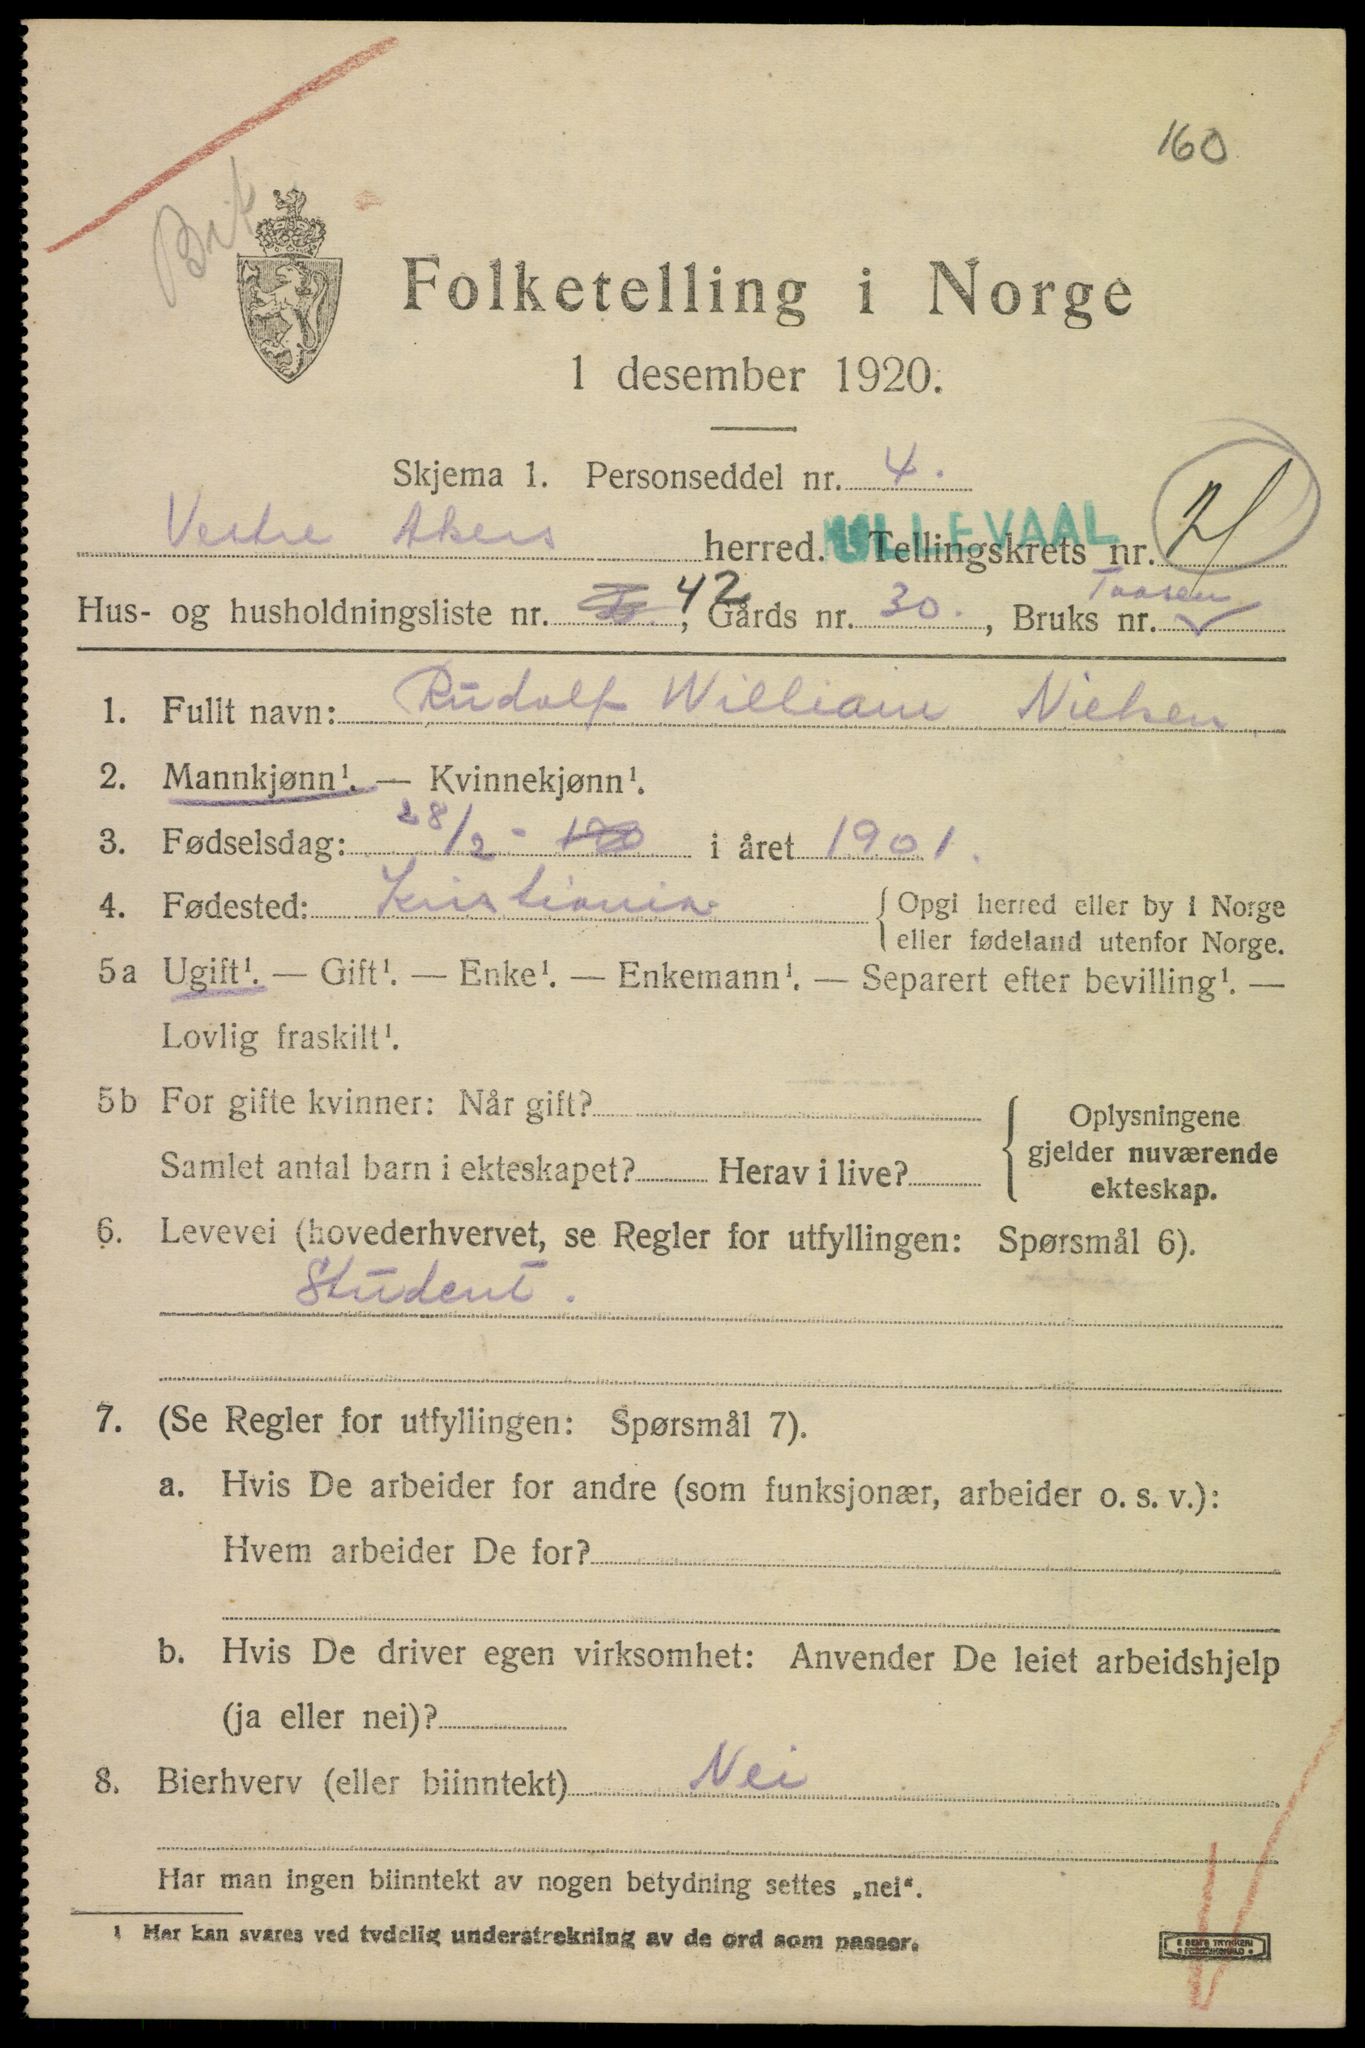 160
Folketelling i Norge
1 desember 1920.
Skjema 1. Personseddel nr. 4.
Vestre Akers herred. ULLEVAAL Tellingskrets nr.
Taasen
Hus- og husholdningsliste nr. 42, Gårds nr. 30., Bruks nr.
1. Fullt navn: Rudolf William Nielsen
2. Mannkjønn¹. — Kvinnekjønn¹.
3. Fødselsdag: 28/2 - i året 1901.
4. Fødested: Kristiania { Opgi herred eller by i Norge
eller fødeland utenfor Norge.
5a Ugift¹. — Gift¹. — Enke¹. — Enkemann¹. — Separert efter bevilling¹. —
Lovlig fraskilt¹.
5b For gifte kvinner: Når gift?
Samlet antal barn i ekteskapet? Herav i live?
Oplysningene
gjelder nuværende
ekteskap.
6. Levevei (hovederhvervet, se Regler for utfyllingen: Spørsmål 6).
Student.
7. (Se Regler for utfyllingen: Spørsmål 7).
a. Hvis De arbeider for andre (som funksjonær, arbeider o. s. v.):
Hvem arbeider De for?
b. Hvis De driver egen virksomhet: Anvender De leiet arbeidshjelp
(ja eller nei)?
8. Bierhverv (eller biinntekt) Nei
Har man ingen biinntekt av nogen betydning settes „nei“.
¹ Her kan svares ved tydelig understrekning av de ord som passer.